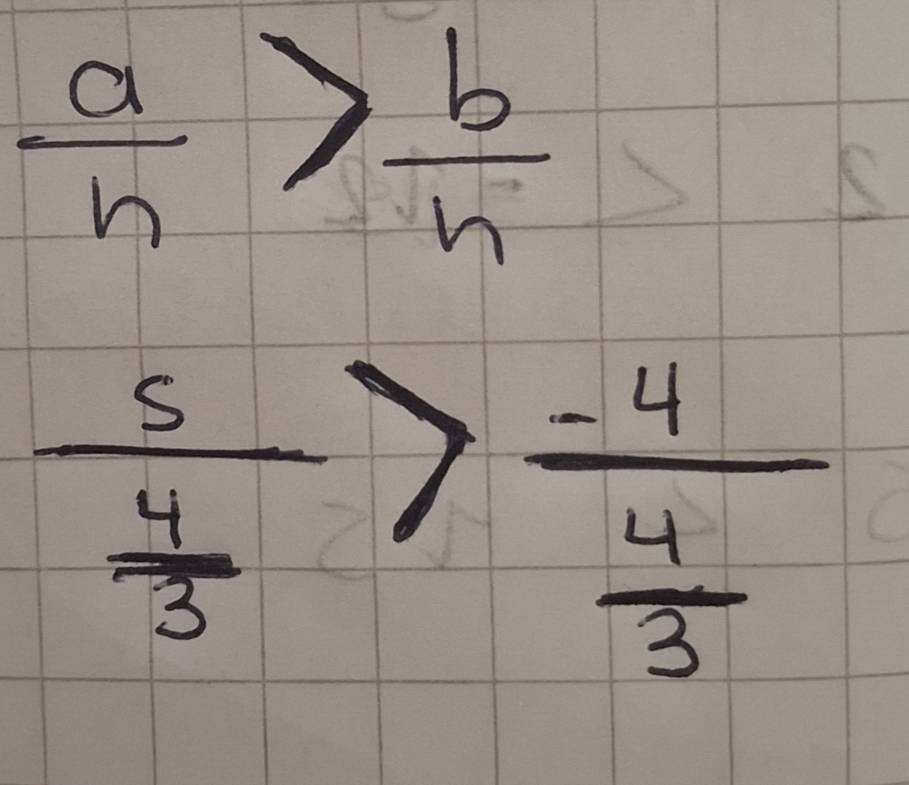 a/n > b/n
5/(4/3) > -4/(4/3)